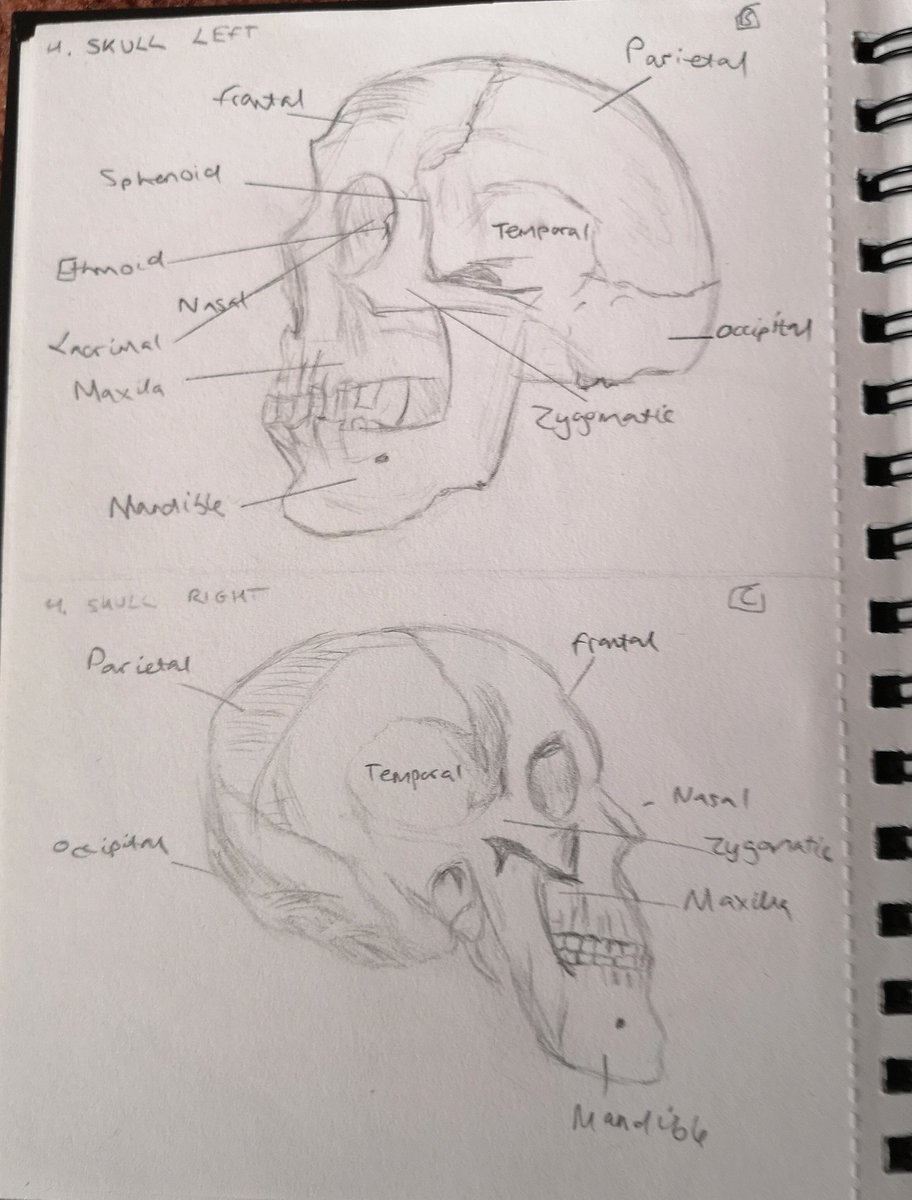 4. SKULL LEFT
B
Parietal
Frontal
Sphenoid
Temporal
Ethmoid
Nasal
Lacrimal
Occipital
Maxila
Zygomatic
Mandible
4. SKULL RIGHT
C
Frontal
Parietal
Temporal
Nasal
Occipital
Zygomatic
Maxilla
Mandible